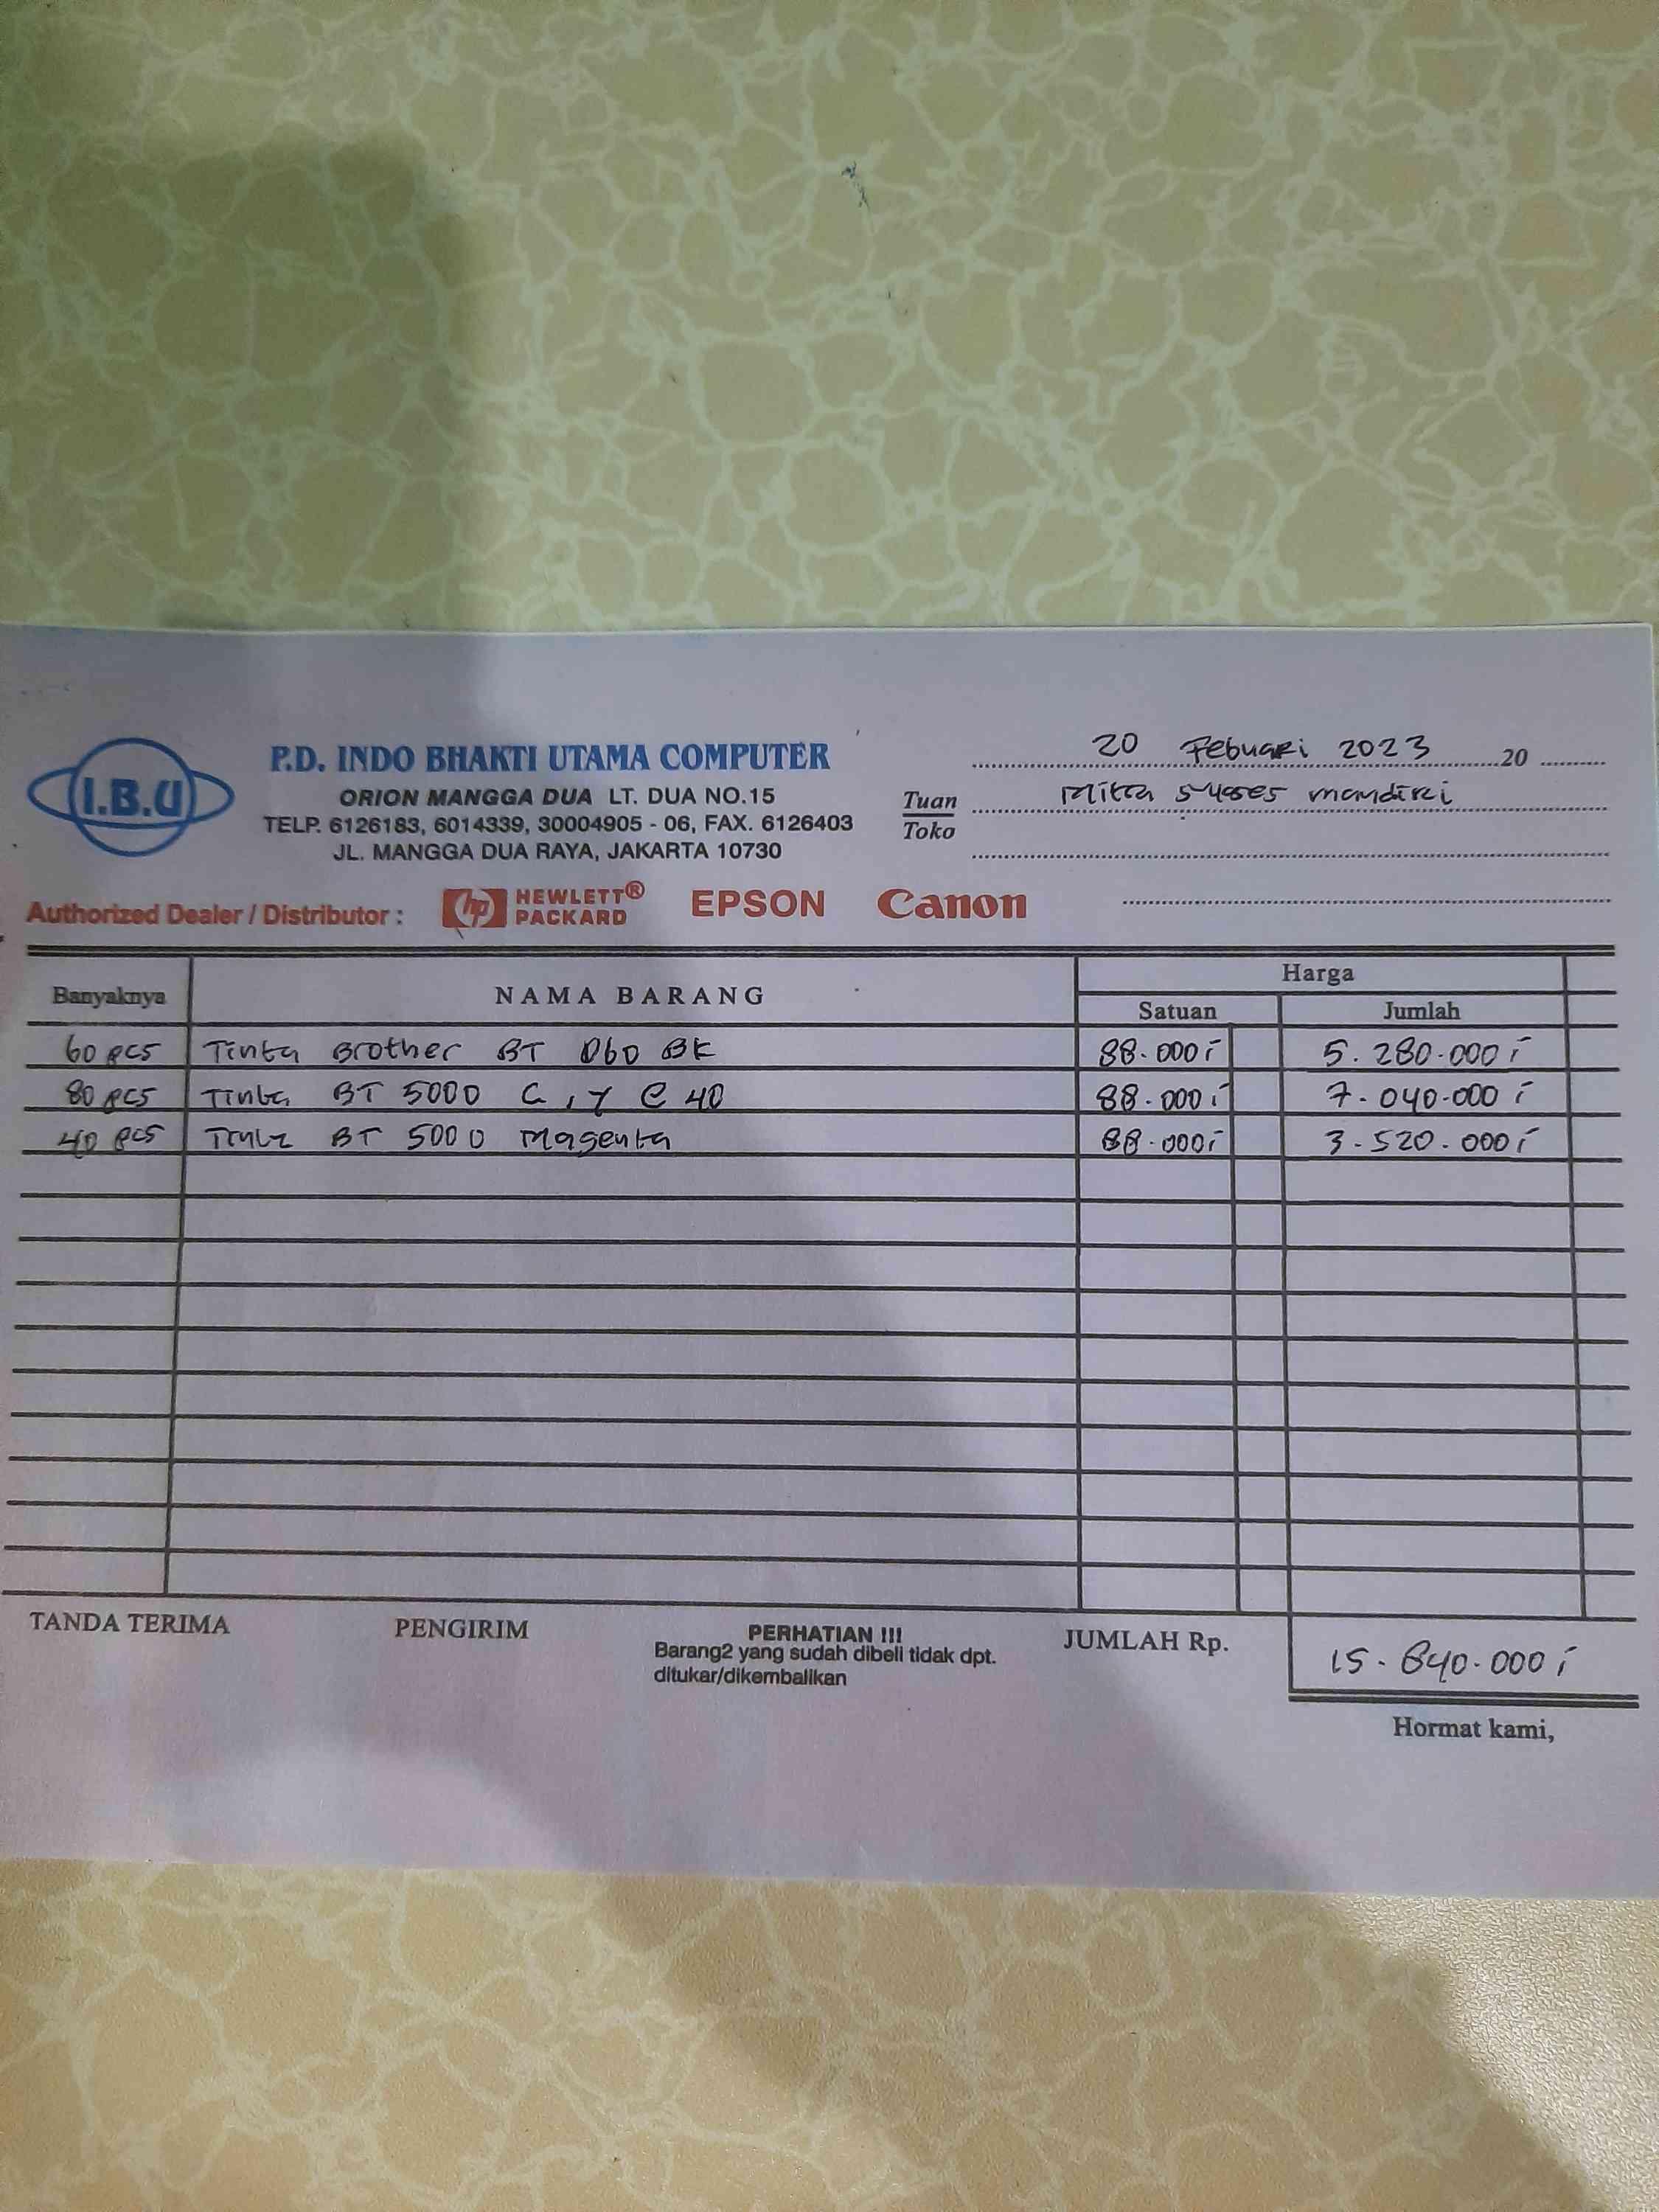 I.B.U
P.D. INDO BHAKTI UTAMA COMPUTER
ORION MANGGA DUA LT. DUA NO.15
TELP. 6126183, 6014339, 30004905 - 06, FAX. 6126403
JL. MANGGA DUA RAYA, JAKARTA 10730
20 Febuari 2023 20
Tuan Mitra sukses mandiri
Toko
Authorized Dealer / Distributor : hp HEWLETT® PACKARD EPSON Canon
Banyaknya NAMA BARANG Harga
Satuan Jumlah
60 pcs Tinta Brother BT D60 BK 88.000 5.280.000
80 pcs Tinta BT 5000 C, Y @ 40 88.000 7.040.000
40 pcs Tinta BT 5000 Magenta 88.000 3.520.000
TANDA TERIMA PENGIRIM PERHATIAN !!! JUMLAH Rp. 15.840.000
Barang2 yang sudah dibeli tidak dpt.
ditukar/dikembalikan
Hormat kami,